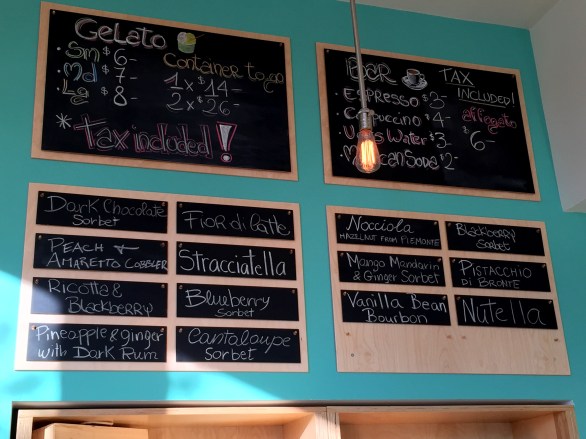 Gelato
• Sm $6-
• Md $7-
• Lg $8-
Container to go
1 x $14-
2 x $26-
* tax included!
BAR
TAX INCLUDED!
Espresso $3-
Cappuccino $4-
Water $3-
Soda $2-
affogato
$6-
Dark Chocolate
Sorbet
Fior di Latte
Peach &
Amaretto Cobbler
Stracciatella
Ricotta &
Blackberry
Blueberry
Sorbet
Pineapple & ginger
with Dark Rum
Cantaloupe
Sorbet
Nocciola
Hazelnut from Piemonte
Blackberry
Sorbet
Mango Mandarin
& Ginger Sorbet
Pistacchio
di Bronte
Vanilla Bean
Bourbon
Nutella